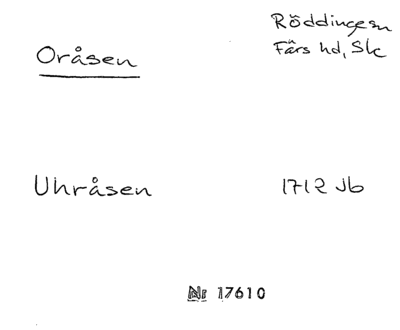 Oråsen
Röddinge sn
Färs hd, Sk
Uhråsen
1712 Jb
Nr 17610